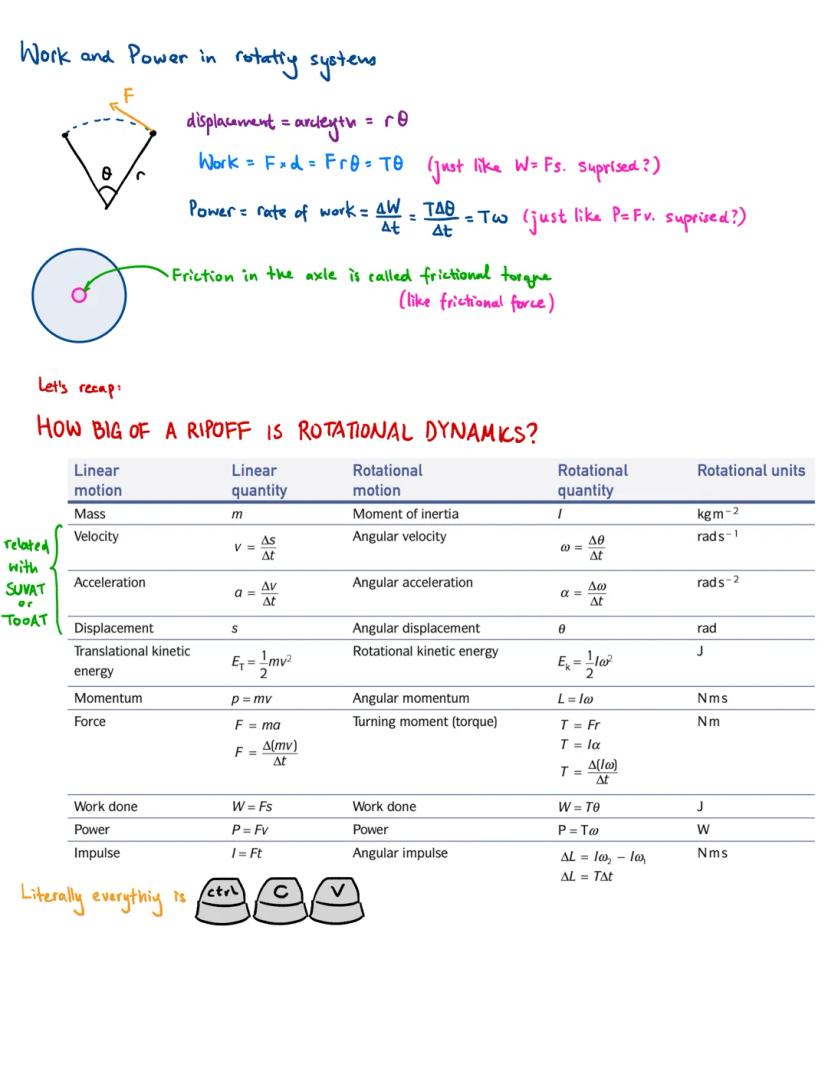 Work and Power in rotatiy systems
F
θ
r
displacement = arcleytn = rθ
Work = F×d = Frθ = Tθ (just like W=Fs. Suprised?)
Power = rate of work = ΔW/Δt = TΔθ/Δt = Tω (just like P=Fv. suprised?)
Friction in the axle is called frictional torque
(like frictional force)
Let's recap:
HOW BIG OF A RIPOFF IS ROTATIONAL DYNAMICS?
Linear motion Linear quantity Rotational motion Rotational quantity Rotational units
Mass m Moment of inertia I kg m⁻²
related with SUVAT or TOOAT
Velocity v = Δs/Δt Angular velocity ω = Δθ/Δt rad s⁻¹
Acceleration a = Δv/Δt Angular acceleration α = Δω/Δt rad s⁻²
Displacement s Angular displacement θ rad
Translational kinetic energy E_T = 1/2 mv² Rotational kinetic energy E_k = 1/2 Iω² J
Momentum p = mv Angular momentum L = Iω N m s
Force F = ma Turning moment (torque) T = Fr N m
T = Iα
F = Δ(mv)/Δt T = Δ(Iω)/Δt
Work done W = Fs Work done W = Tθ J
Power P = Fv Power P = Tω W
Impulse I = Ft Angular impulse ΔL = Iω₂ − Iω₁ N m s
ΔL = TΔt
Literally everythiy is ctrl C V